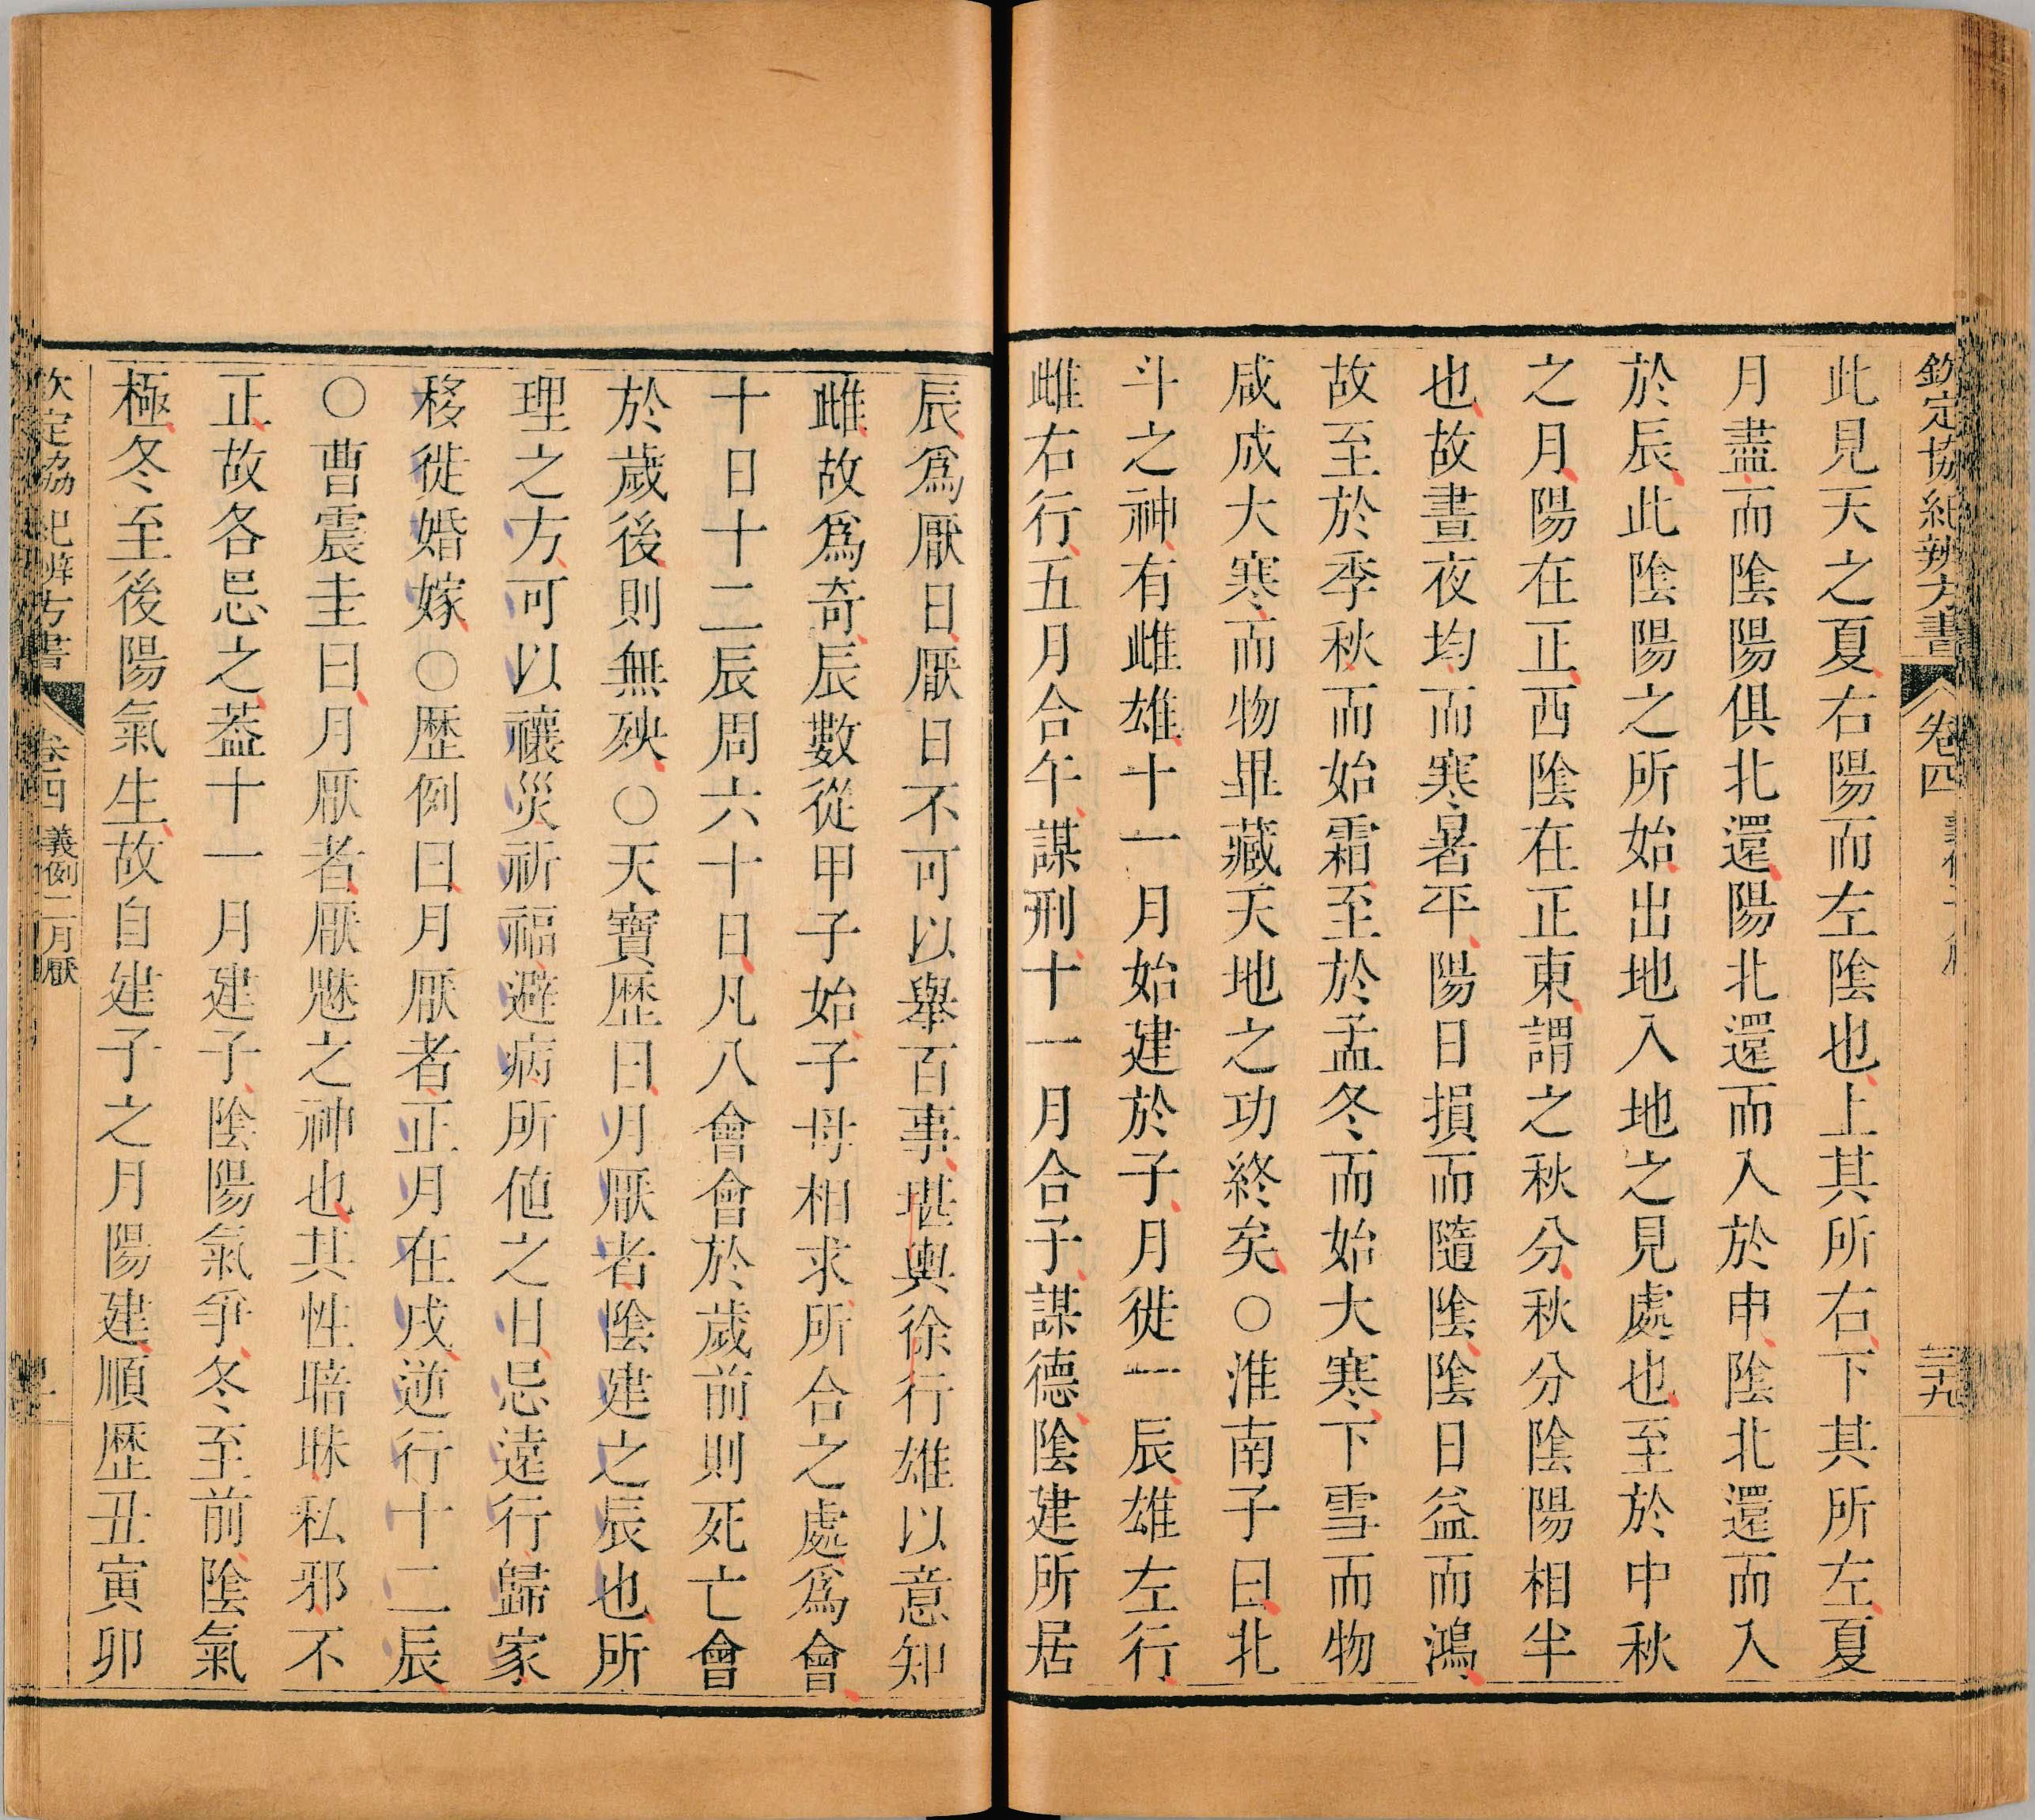 欽定協紀辨方書 卷四 三十九
此見天之夏右陽而左陰也上其所右下其所左夏
月盡而陰陽俱北還陽北還而入於申陰北還而入
於辰此陰陽之所始出地入地之見處也至於中秋
之月陽在正西陰在正東謂之秋分秋分陰陽相半
也故晝夜均而寒暑平陽日損而隨陰陰日益而鴻
故至於季秋而始霜至於孟冬而始大寒下雪而物
咸成大寒而物畢藏天地之功終矣○淮南子曰北
斗之神有雌雄十一月始建於子月徙一辰雄左行
雌右行五月合午謀刑十一月合子謀德陰建所居
辰爲厭日厭日不可以舉百事堪輿徐行雄以意知
雌故爲奇辰數從甲子始子母相求所合之處爲會
十日十二辰周六十日凡八會會於歲前則死亡會
於歲後則無殃○天寶歷曰月厭者陰建之辰也所
理之方可以禳災祈福避病所値之日忌遠行歸家
移徙婚嫁○歷例曰月厭者正月在戌逆行十二辰
○曹震圭曰月厭者厭魅之神也其性暗昧私邪不
正故各忌之葢十一月建子陰陽氣爭冬至前陰氣
極冬至後陽氣生故自建子之月陽建順歷丑寅卯
欽定協紀辨方書 卷四 義例二月厭